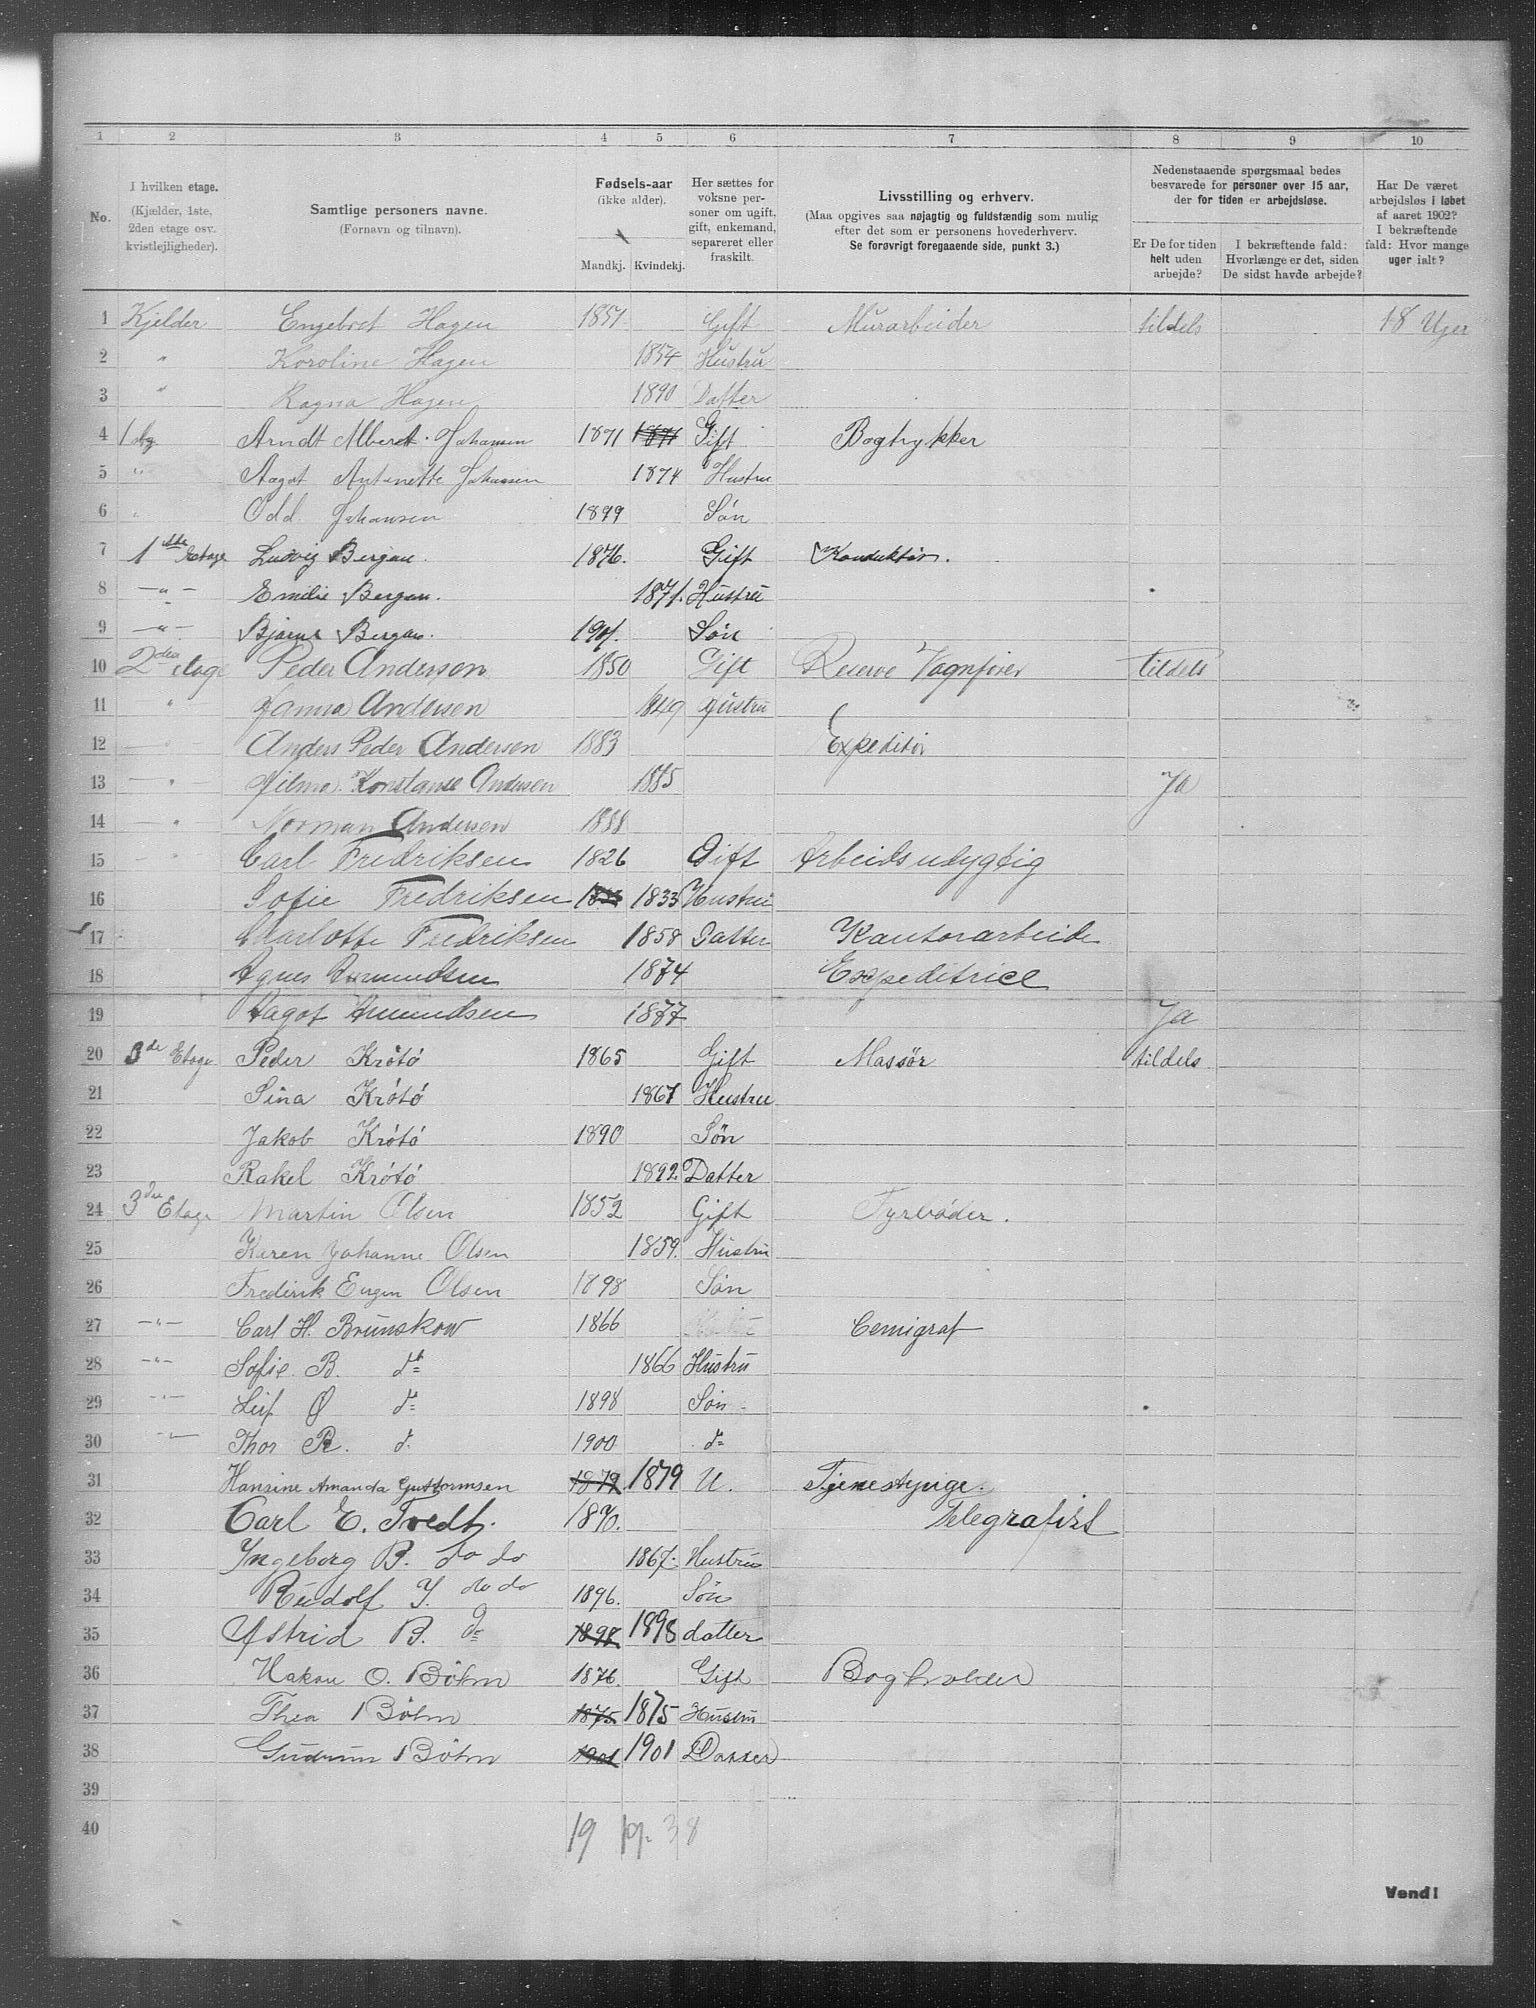 1 2 3 4 5 6 7 8 9 10
No.
I hvilken etage.
(Kjælder, 1ste,
2den etage osv.
kvistlejligheder).
Samtlige personers navne.
(Fornavn og tilnavn).
Fødsels-aar
(ikke alder).
Mandkj. Kvindekj.
Her sættes for
voksne per-
soner om ugift,
gift, enkemand,
separeret eller
fraskilt.
Livsstilling og erhverv.
(Maa opgives saa nøjagtig og fuldstændig som mulig
efter det som er personens hovederhverv.
Se forøvrigt foregaaende side, punkt 3.)
Nedenstaaende spørgsmaal bedes
besvarede for personer over 15 aar,
der for tiden er arbejdsløse.
Er De for tiden
helt uden
arbejde?
I bekræftende fald:
Hvorlænge er det, siden
De sidst havde arbejde?
Har De været
arbejdsløs i løbet
af aaret 1902?
I bekræftende
fald: Hvor mange
uger ialt?
1 Kjelder Engebret Hagen 1857 Gift Murarbeider tildels 18 Uger
2 " Karoline Hagen 1854 Hustru
3 " Ragna Hagen 1890 Datter
4 Arndt Albert Johansen 1871 1871 Gift Bogtrykker
5 " Aagot Antonette Johansen 1874 Hustru
6 " Odd Johansen 1899 Søn
7 1ste Etage Ludvig Bergan. 1876. Gift Konduktør.
8 -"- Emilie Bergan. 1871. Hustru
9 -"- Bjarne Bergan. 1901. Søn
10 2den etage Peder Andersen 1850 Gift Reserve Vognfører tildels
11 " Hanna Andersen 1849 Hustru
12 Anders Peder Andersen 1883 Expeditør
13 -"- Hilma Konstanse Andersen 1885 Ja
14 -"- Norman Andersen 1888
15 -"- Carl Fredriksen 1826 Gift Arbeidsudygtig
16 Sofie Fredriksen 1833 Hustru
17 Charlotte Fredriksen 1858 Datter Kantorarbeide
18 Agnes Amundsen 1874 Expeditrice
19 Aagot Amundsen 1877 Ja
20 3de Etage Peder Krótó 1865 Gift Massør tildels
21 Sina Krótó 1867 Hustru
22 Jakob Krótó 1890 Søn
23 Rakel Krótó 1892 Datter
24 3die Etage Martin Olsen 1852 Gift Fyrbøder.
25 Karen Johanne Olsen 1859. Hustru
26 Frederik Eugen Olsen 1898 Søn
27 -"- Carl H. Brunskow 1866 Cemigraf
28 -"- Sofie B. do 1866 Hustru
29 -"- Leif Ø do 1898 Søn
30 -"- Thor R. d. 1900 do
31 Hansine Amanda Guttormsen 1879 1879 U. Tjenestepige.
32 Carl E. Tvedt. 1870. Telegrafist
33 Yngeborg B. do do 1867. Hustru
34 Rudolf Y. do do 1896. Søn
35 Astrid B. do 1898 1898 datter
36 Hakon O. Böhm 1876. Gift Bogholder
37 Thea Böhm 1875 1875 Hustru
38 Gudrun Böhm 1901 1901 Datter
39
40 19 19. 38
Vend!